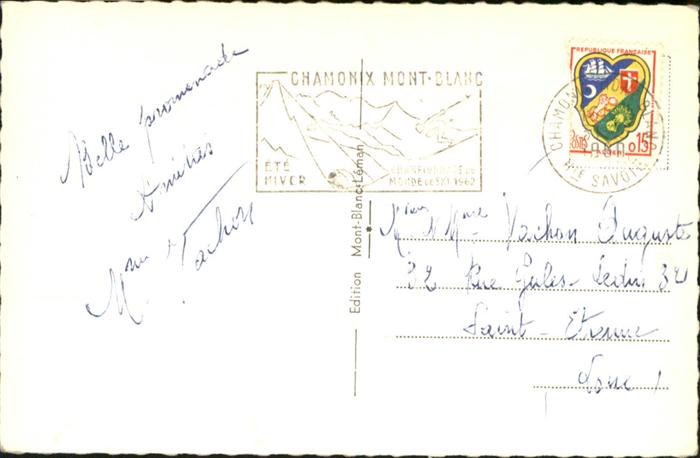 Belle promenade
Amitiés
Mme Vachon
CHAMONIX MONT-BLANC
ÉTÉ
HIVER
CHAMPIONNATS DU
MONDE DE SKI 1962
REPUBLIQUE FRANÇAISE
POSTES
0,15
ALGER
CHAMONIX MONT BLANC
HTE SAVOIE
Edition Mont-Blanc-Léman
Mme Vachon Auguste
32 Rue Jules-Ledin 32
Saint-Etienne
Loire